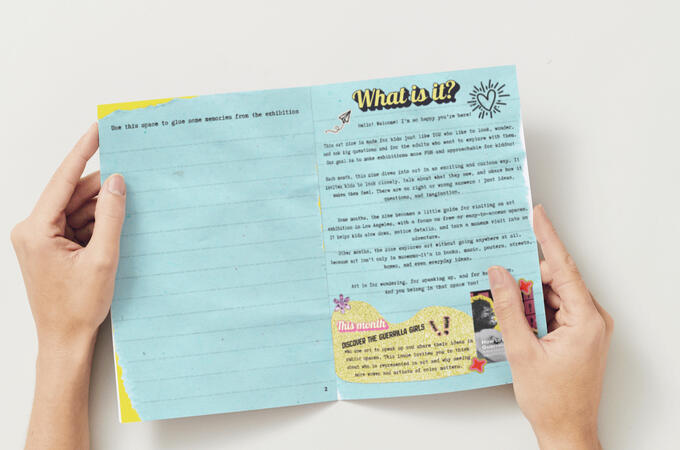 Use this space to glue some memories from the exhibition
2
What is it?
Hello! Welcome! I'm so happy you're here!
This art zine is made for kids just like YOU who like to look, wonder,
and ask big questions and for the adults who want to explore with them.
Our goal is to make exhibitions more FUN and approachable for kiddos!
Each month, this zine dives into art in an exciting and curious way. It
invites kids to look closely, talk about what they see, and share how it
makes them feel. There are no right or wrong answers : just ideas,
questions, and imagination.
Some months, the zine becomes a little guide for visiting an art
exhibition in Los Angeles, with a focus on free or easy-to-access spaces.
It helps kids slow down, notice details, and turn a museum visit into an
adventure.
Other months, the zine explores art without going anywhere at all,
because art isn't only in museums—it's in books, music, posters, streets,
homes, and even everyday ideas.
Art is for wondering, for speaking up, and for
And you belong in that space too!
This month
DISCOVER THE GUERRILLA GIRLS
who use art to speak up and share their ideas in
public spaces. This issue invites you to think
about who is represented in art and why seeing
more women and artists of color matters.